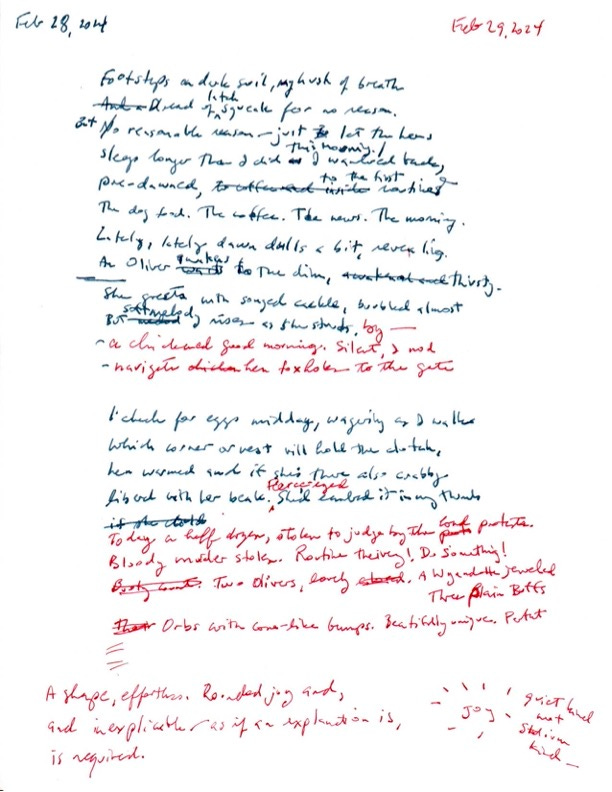 Feb 28, 2024
Feb 29, 2024
Footsteps on dark soil, my hush of breath
latch
And a Dread of squeak for no reason.
But No reasonable reason — just to let the hens
this morning!
sleep longer than I did as I wandered back,
to the first
pre-dawned, to coffee and inside routines
The dog food. The coffee. The news. The morning.
Lately, lately dawn dulls a bit, revealing.
An Oliver waits to the dim, thirsty.
She greets with songed cackle, bubbled almost
soft melody
But rises as she struts, by —
- a chickened good morning. Silent, I nod
- navigate chicken hen foxholes to the gate
I check for eggs midday, wagering as I walk
which corner or nest will hold the clutch,
hen warmed and if she's there also crabby
Fierce-eyed
fibered with her beak. She'd landed it in my thumb
if she could
loud
Today a half dozen, stolen to judge by the protests.
Bloody murder stolen. Routine thievery! Do something!
Two Olivers, lovely. A Wyandotte jeweled
Three Plain Buffs
Orbs with cone-like bumps. Beautifully unique. Perfect
A shape, effortless. Rounded joy and,
and inexplicable — as if an explanation is,
is required.
joy
quiet kind
not
stadium
kind —